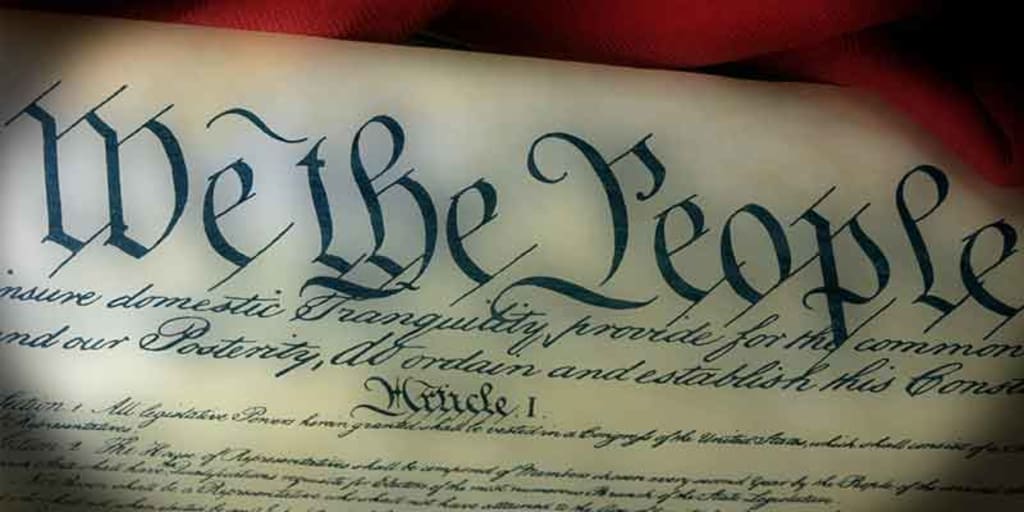 We the People
nsure domestic Tranquility, provide for the common
nd our Posterity, do ordain and establish this Const
Article. I.
Section. 1. All legislative Powers herein granted shall be vested in a Congress of the United States, which shall consist of a
Representatives.
Section. 2. The House of Representatives shall be composed of Members chosen every second Year by the People of the several
State shall have the Qualifications requisite for Electors of the most numerous Branch of the State Legislature.
No Person shall be a Representative who shall not have attained to the